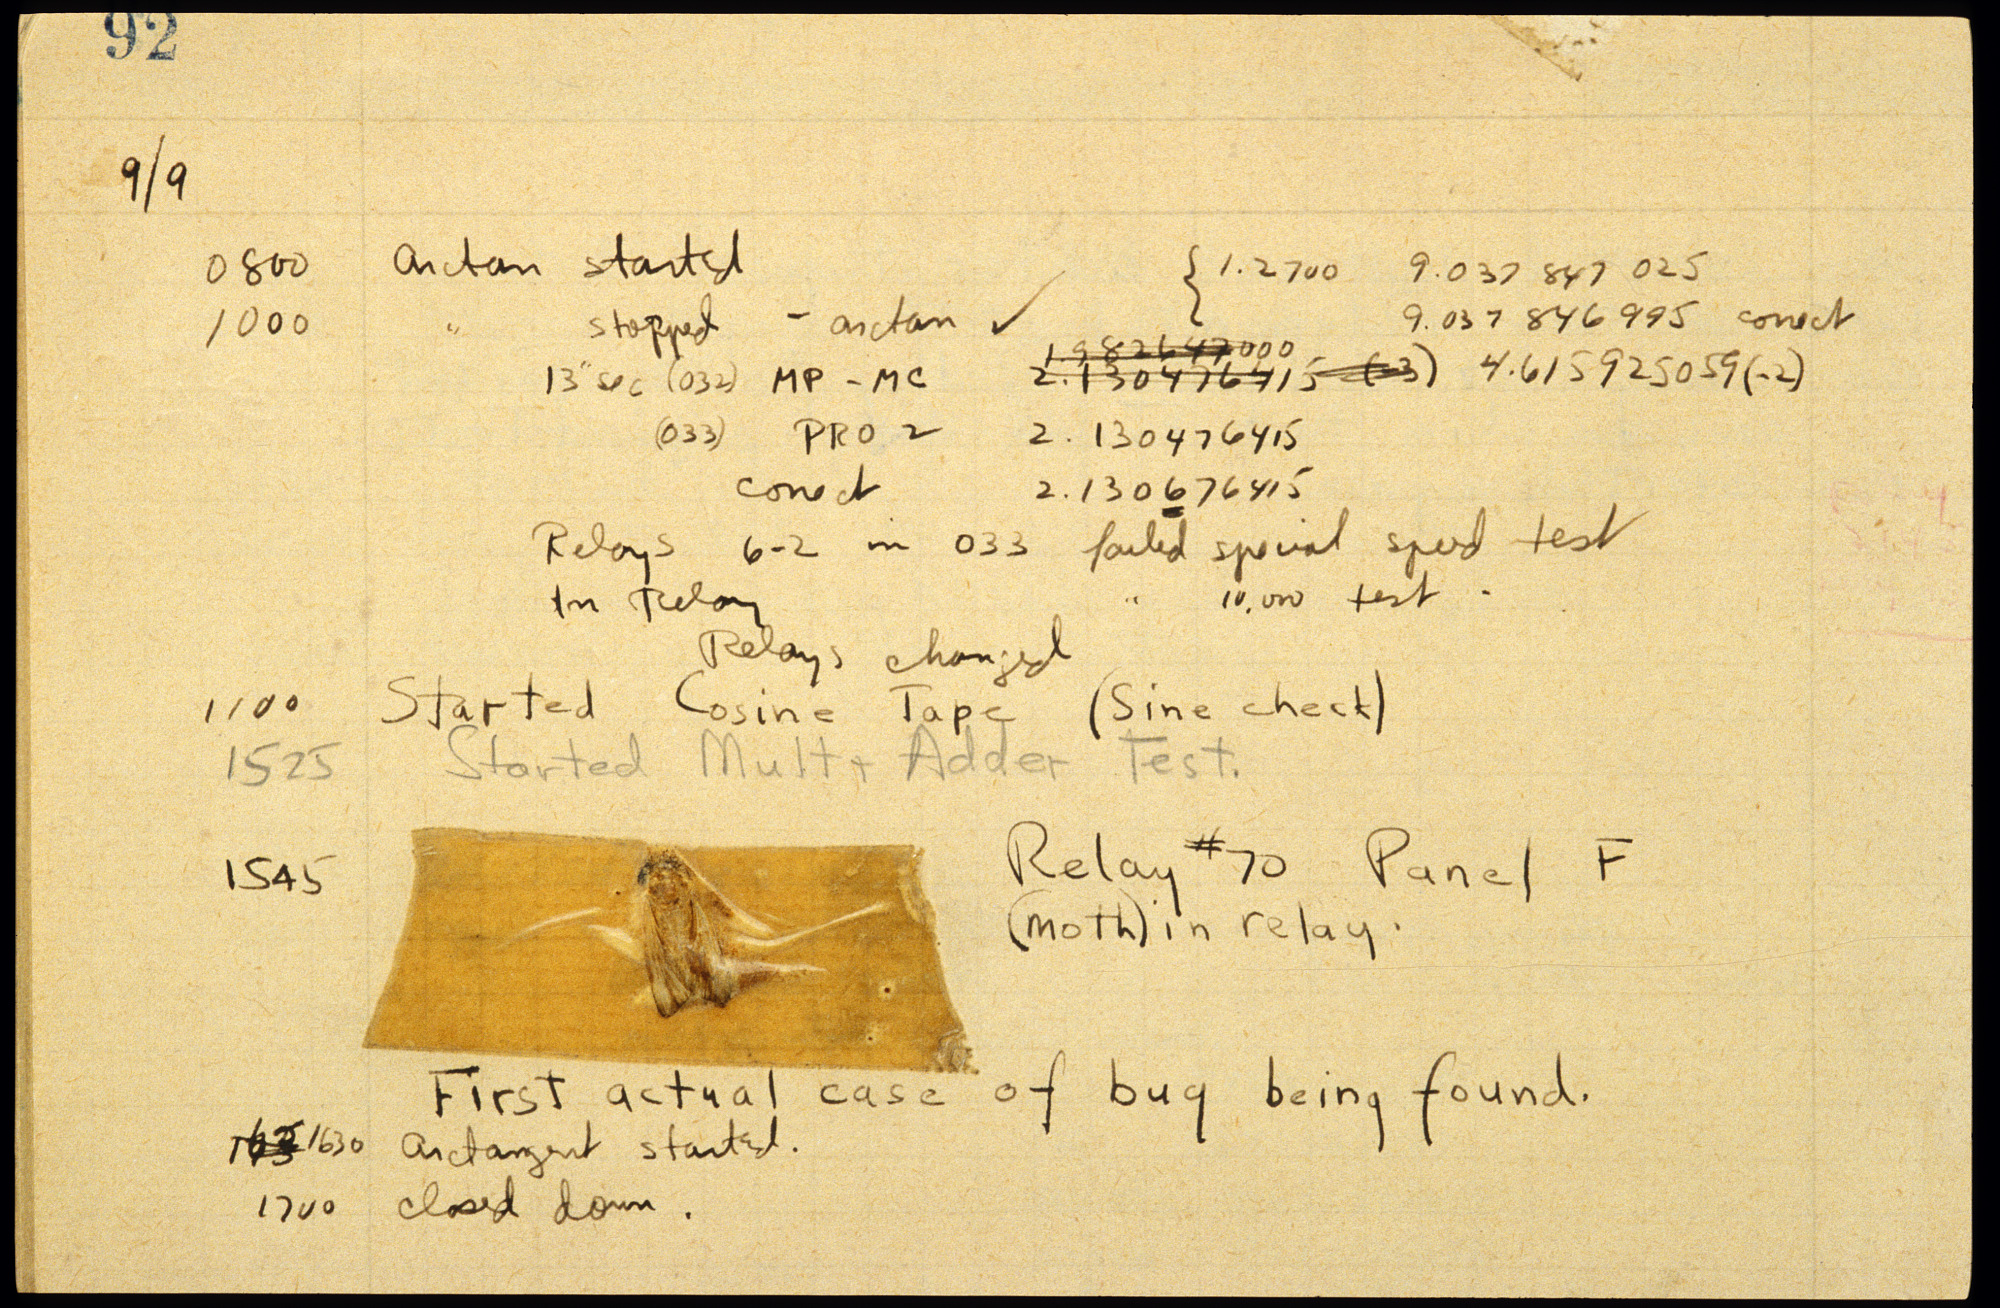 92
9/9
0800 arctan started { 1.2700 9.037 847 025
1000 " stopped - arctan ✓ 9.037 846 995 correct
1.982647000
13" sec (032) MP - MC 2.130476415 (-3) 4.615925059(-2)
(033) PRO 2 2.130476415
correct 2.130676415
Relays 6-2 in 033 failed special speed test
In Relay " 10,000 test .
Relays changed
1100 Started Cosine Tape (Sine check)
1525 Started Mult + Adder Test.
1545 Relay #70 Panel F
(moth) in relay.
First actual case of bug being found.
1630 arctangent started.
1700 closed down.